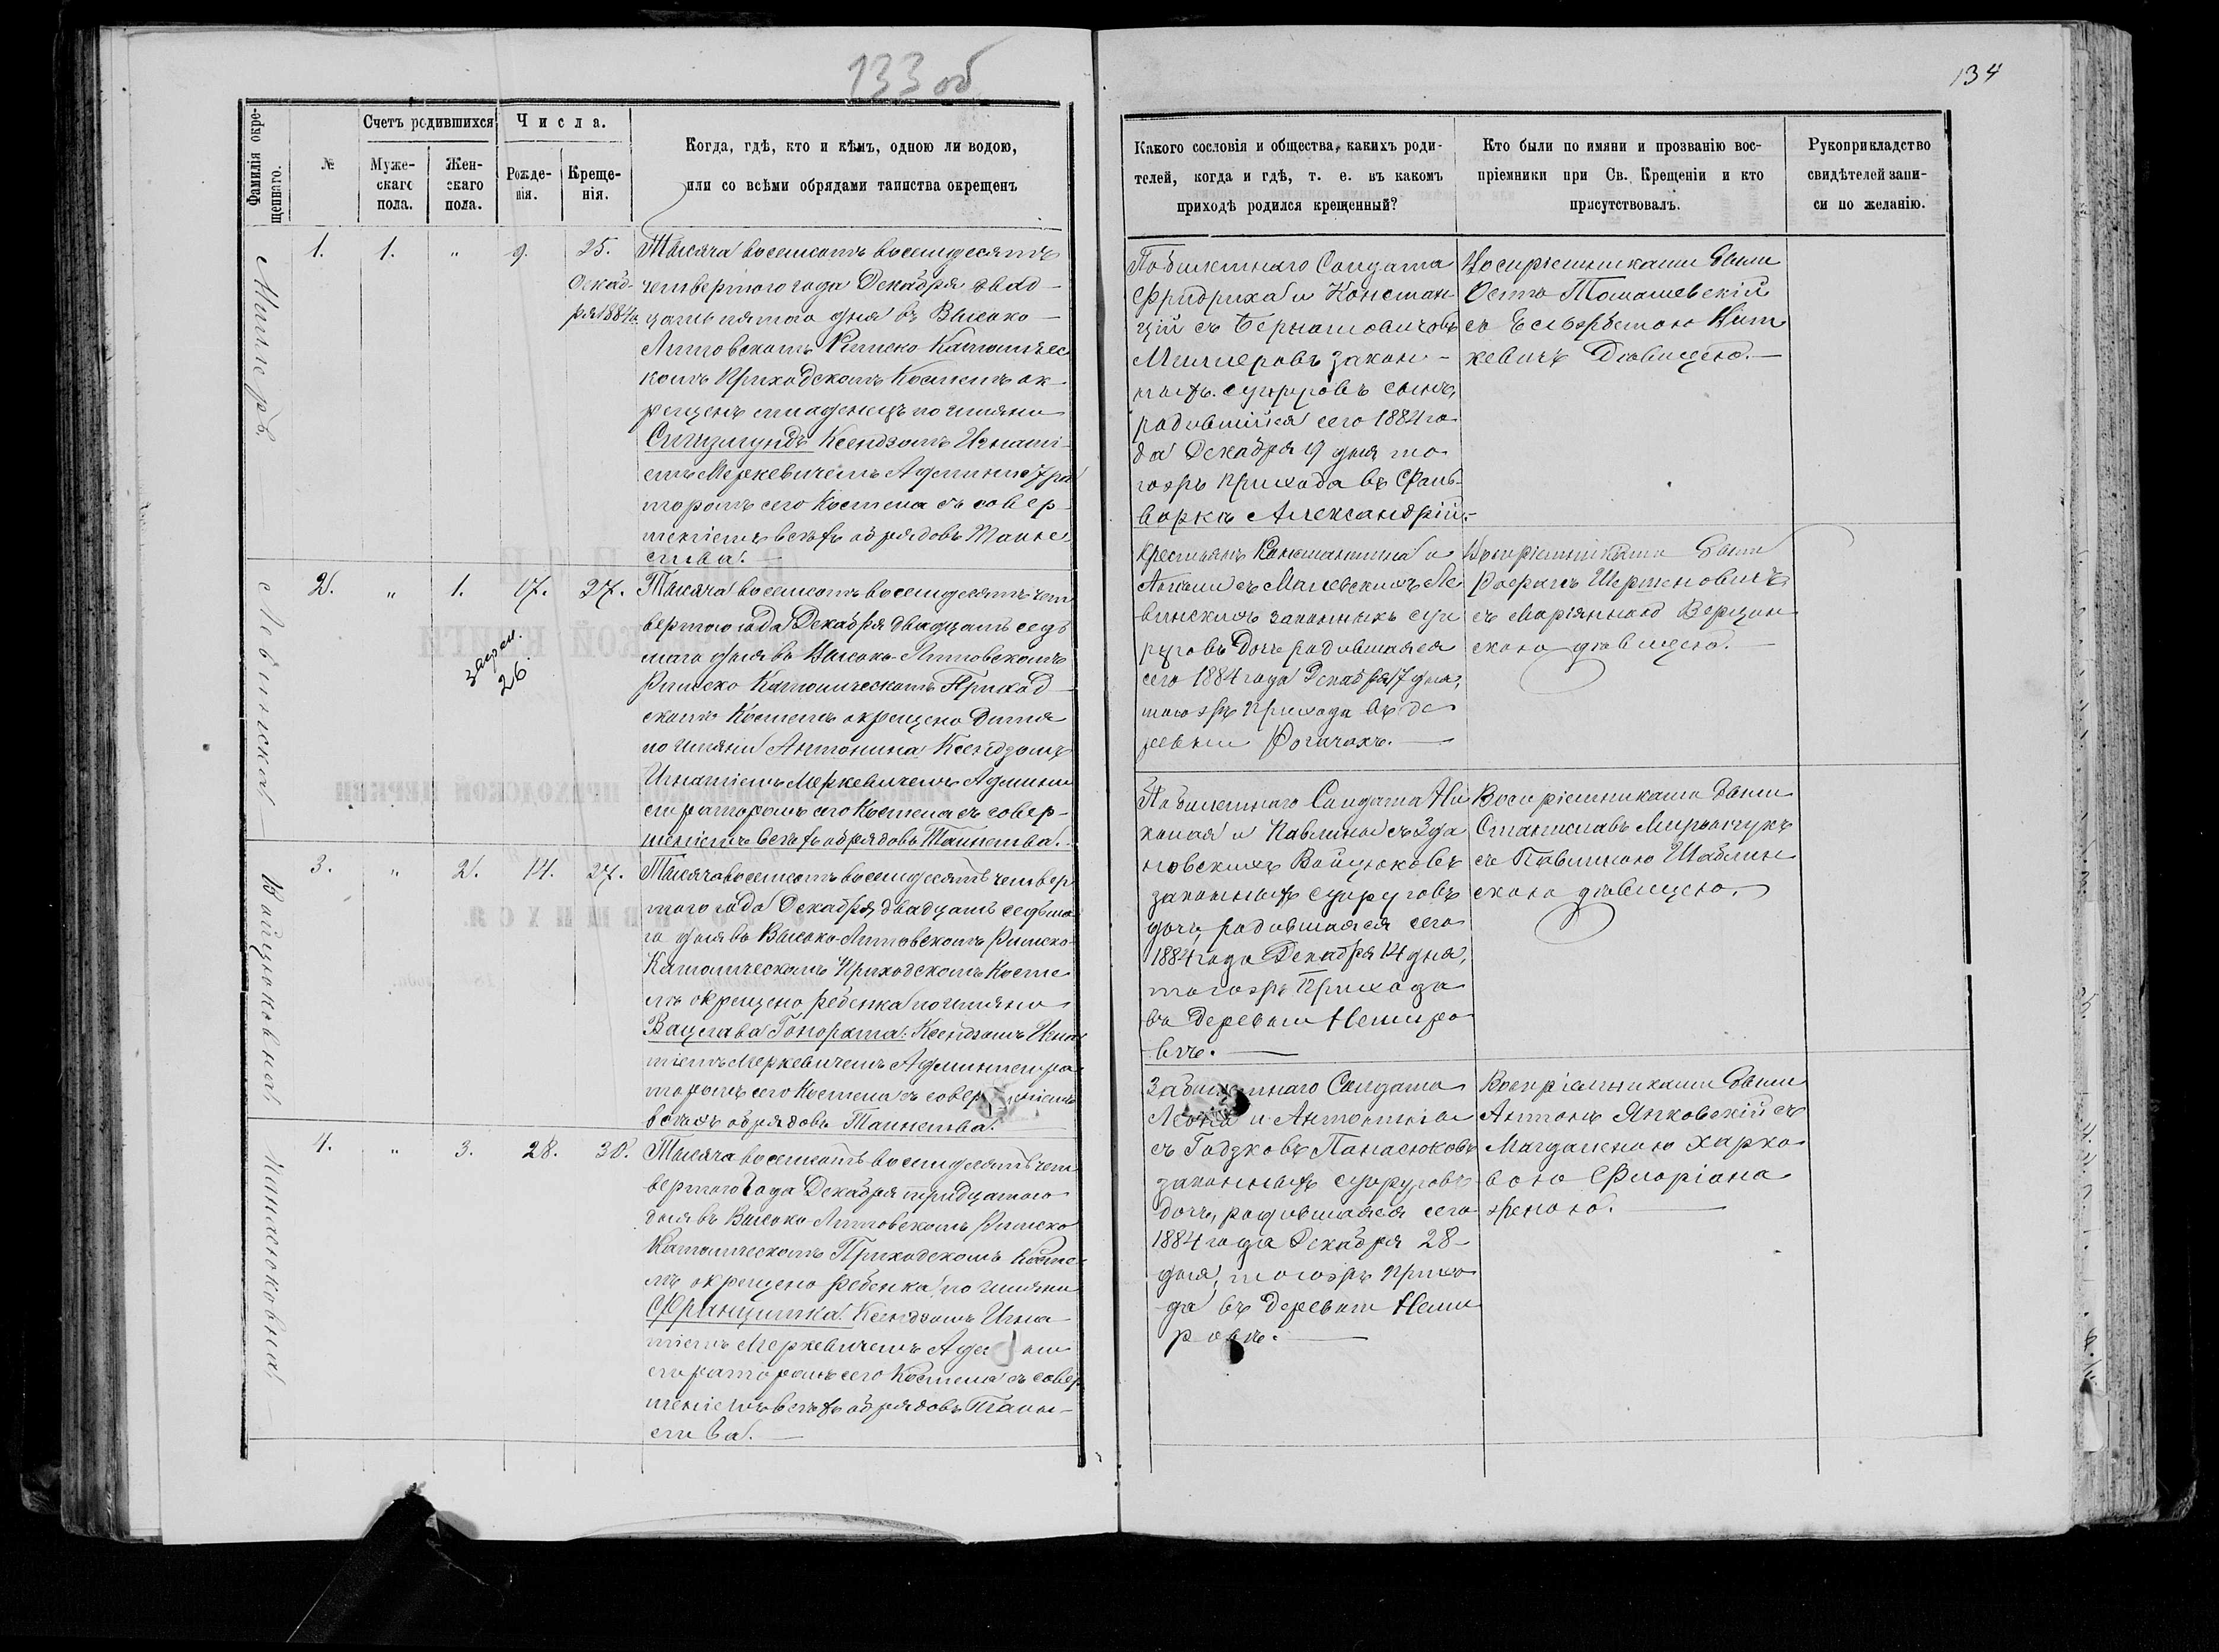 133 об
134
Фамилія окрещеннаго.
№
Счетъ родившихся
Муже-
скаго
пола.
Жен-
скаго
пола.
Числа.
Рожде-
нія.
Креще-
нія.
Когда, гдѣ, кто и кѣмъ, одною ли водою,
или со всѣми обрядами таинства окрещенъ
Какого сословія и общества, какихъ роди-
телей, когда и гдѣ, т. е. въ какомъ
приходѣ родился крещенный?
Кто были по имяни и прозванію вос-
пріемники при Св. Крещеніи и кто
присутствовалъ.
Рукоприкладство
свидѣтелей запи-
си по желанію.
Миллеръ.
1. 1. " 9. 25.
Декаб-
ря 1884 г.
Тысяча восемсотъ восемдесятъ
четвертого года Декабря двад-
цать пятого дня въ Высоко-
Литовскомъ Римско Католичес
комъ Приходскомъ Костелѣ ок-
рещенъ младенецъ по имяни
Сигизмундъ Ксендзомъ Игнаті-
емъ Меркевичемъ Администра
торомъ сего Костела съ совер-
шеніемъ всѣхъ обрядовъ Таинс
ства.
Побилетнаго Солдата
Фридриха и Констан-
ціи съ Бернатовичовъ
Миллеровъ закон-
ныхъ супруговъ сынъ,
родившійся сего 1884 го-
да Декабря 9 дня то-
гожъ Прихода въ Фоль-
варкѣ Александріи.
Воспріемниками были
Осипъ Томашевскій
съ Ельжбетою Вит
кевичъ Дѣвицею.
Левинская
2. " 1. 17. 27.
26.
Тысяча восемсотъ восемдесятъ чет
вертого года Декабря двадцать седь
мого дня въ Высоко-Литовскомъ
Римско Католическомъ Приход-
скомъ Костелѣ окрещено Дитя
по имяни Антонина Ксендзомъ
Игнатіемъ Меркевичемъ Админи
страторомъ сего Костела съ совер-
шеніемъ всѣхъ обрядовъ Таинства.
Крестьянъ Константина и
съ Малевскихъ Ле
винскихъ законныхъ суп
руговъ Дочь родившаяся
сего 1884 года Декабря 17 дня,
тогожъ Прихода въ де
ревни Рогачахъ.
Воспріемниками были
съ Маріянною
скою дѣвицею.
Войцюковна
3. " 2. 14. 27.
Тысяча восемсотъ восемдесятъ четвер
того года Декабря двадцать седьмо
го дня въ Высоко-Литовскомъ Римско-
Католическомъ Приходскомъ Косте
лѣ окрещено ребенка по имяни
Вацлава Гонората. Ксендзомъ Игна
тіемъ Меркевичемъ Администра
торомъ сего Костела съ совершеніемъ
всѣхъ обрядовъ Таинства.
Побилетнаго Солдата Ни
колая и Павлины съ Зда
новскихъ Войцюковъ
законныхъ супруговъ
дочь, родившаяся сего
1884 года Декабря 14 дня,
тогожъ Прихода
въ Деревни Немиро
вкѣ.
Воспріемниками были
Станиславъ Мирончукъ
съ Павлиною Шаблин
скою дѣвицею.
Панасюковна
4. " 3. 28. 30.
Тысяча восемсотъ восемдесятъ чет
вертого Года Декабря тридцатого
дня въ Высоко Литовскомъ Римско
Католическомъ Приходскомъ Косте
лѣ окрещено ребенка по имяни
Францишка. Ксендзомъ Игна-
тіемъ Меркевичемъ Админи
страторомъ сего Костела съ совер
шеніемъ всѣхъ обрядовъ Таин-
ства.
Забилетнаго Солдата
Леона и Антонины
съ Годзковъ Панасюковъ
законныхъ супруговъ
дочь, родившаяся сего
1884 года Декабря 28
дня, тогожъ Прихо
да въ деревни Неми
ровкѣ.
Воспріемниками были
Антонъ Янковскій съ
Магдаленою Харко
вою Флоріана
женою.